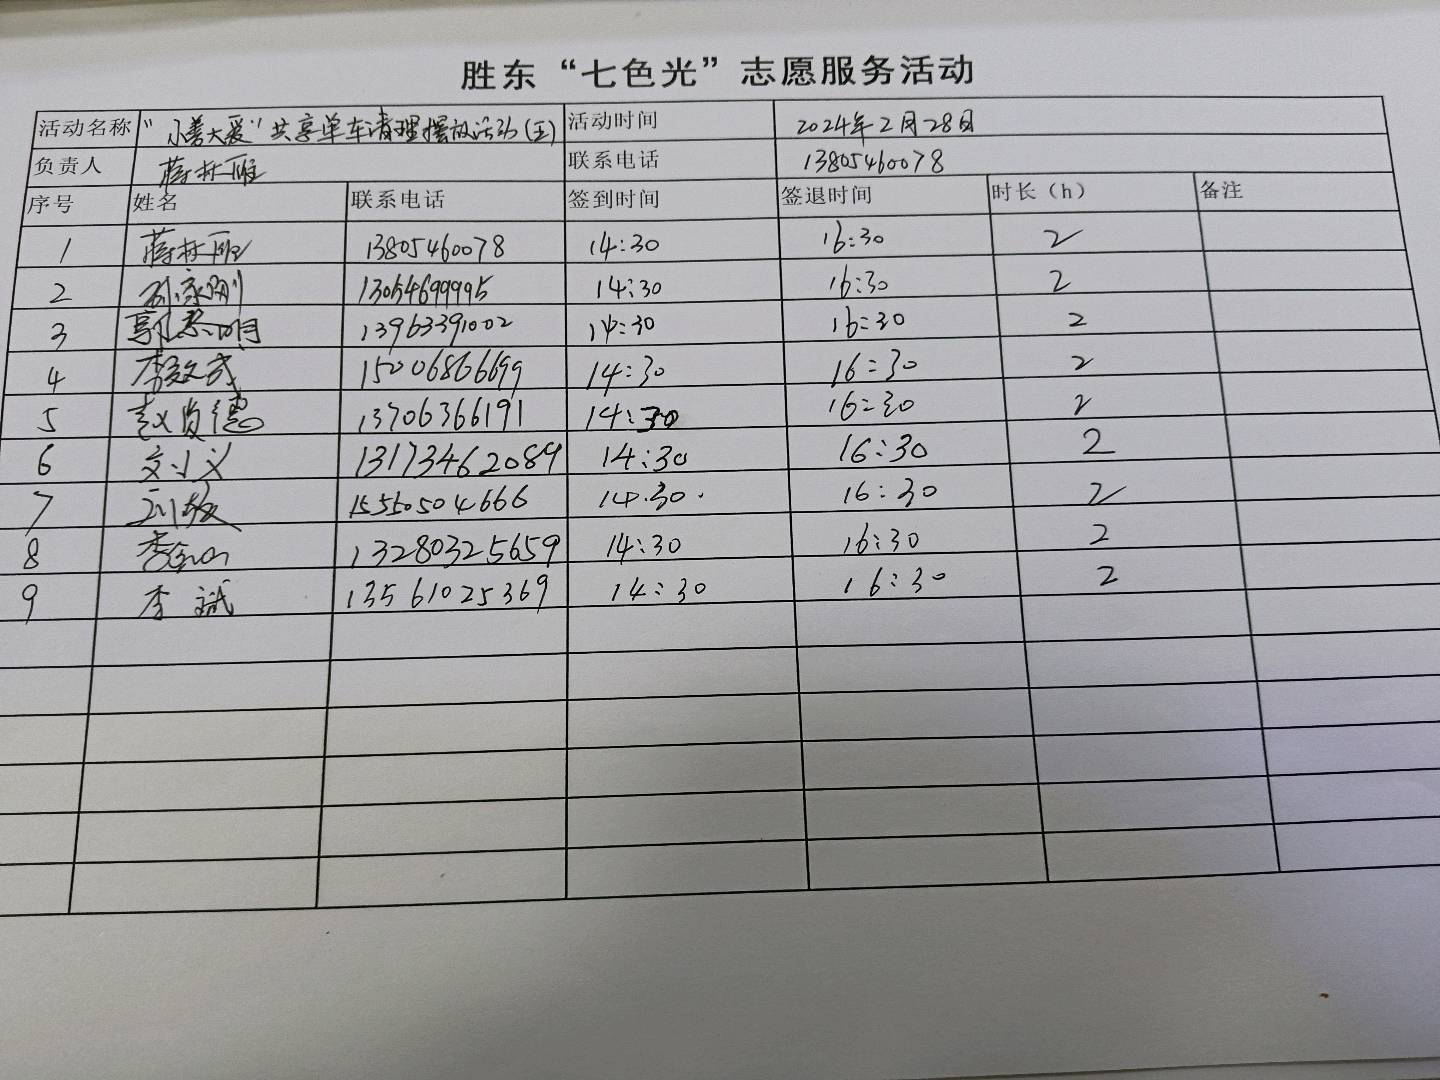 胜东“七色光”志愿服务活动
活动名称 “小善大爱”共享单车清理摆放活动(五) 活动时间 2024年2月28日
负责人 联系电话 13805460078
序号 姓名 联系电话 签到时间 签退时间 时长（h） 备注
1 13805460078 14:30 16:30 2
2 13054699995 14:30 16:30 2
3 13963391002 14:30 16:30 2
4 李文成 15006866699 14:30 16:30 2
5 赵肖德 13706366191 14:30 16:30 2
6 13173462089 14:30 16:30 2
7 刘敏 15550504666 14:30 16:30 2
8 13280325659 14:30 16:30 2
9 李斌 13561025369 14:30 16:30 2